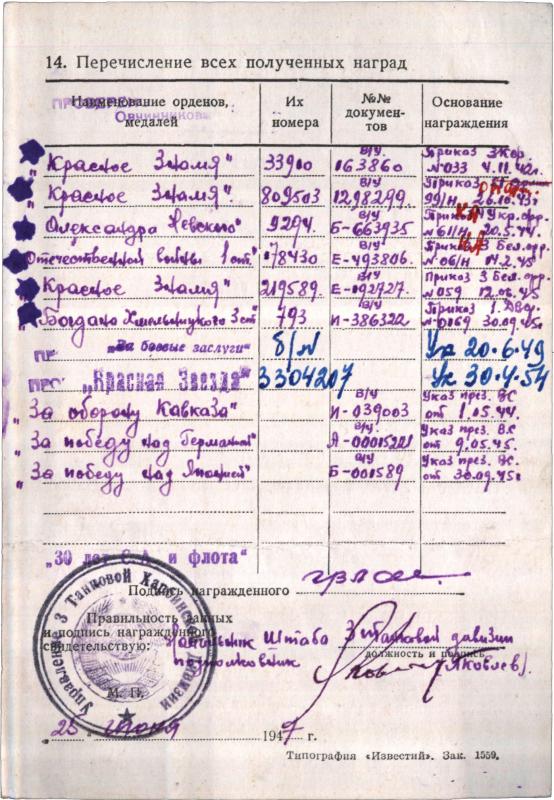 14. Перечисление всех полученных наград
Наименование орденов, медалей Их номера №№ документов Основание награждения
Овчинников
„Красное Знамя" 33910 в/у 163860 Приказ №033 4.11.42г.
„Красное Знамя" 809503 в/у 1298299 Приказ 99/н 26.10.43г.
Олександра Невского" 9294 в/у Б-663935 Приказ Укр. фр. №61/н 20.5.44.
Отечественной войны 1 ст. 78430 в/у Е-493806 Приказ 3 Бел. фр. №06/н 14.2.45
„Красное Знамя" 219589 в/у Е-092727 Приказ 3 Бел. фр. №059 12.06.45
Богдана Хмельницкого 3 ст 793 в/у И-386322 Приказ 1. №0169 30.09.45г.
„За боевые заслуги" б/N Ук 20-6-49
„Красная Звезда" 3304207 Ук 30-4-54
„За оборону Кавказа" в/у И-039003 Указ през. ВС от 1.05.44.
„За победу над Германией" в/у А-00015221 Указ през. ВС от 9.05.45.
„За победу над Японией" в/у Б-001589 Указ през. ВС. от 30.09.45г.
„30 лет С.А. и флота"
Подпись награжденного
Правильность данных
и подпись награжденного
свидетельствую: Начальник Штаба 3 танковой дивизии
должность и подпись
подполковник (Яковлев)
Управление 3 Танковой
М. П.
„25" июня 1947 г.
Типография «Известий». Зак. 1559.